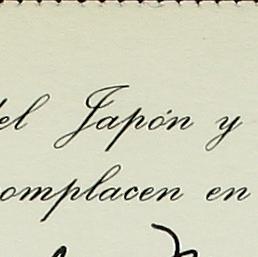 del Japón y
complacen en